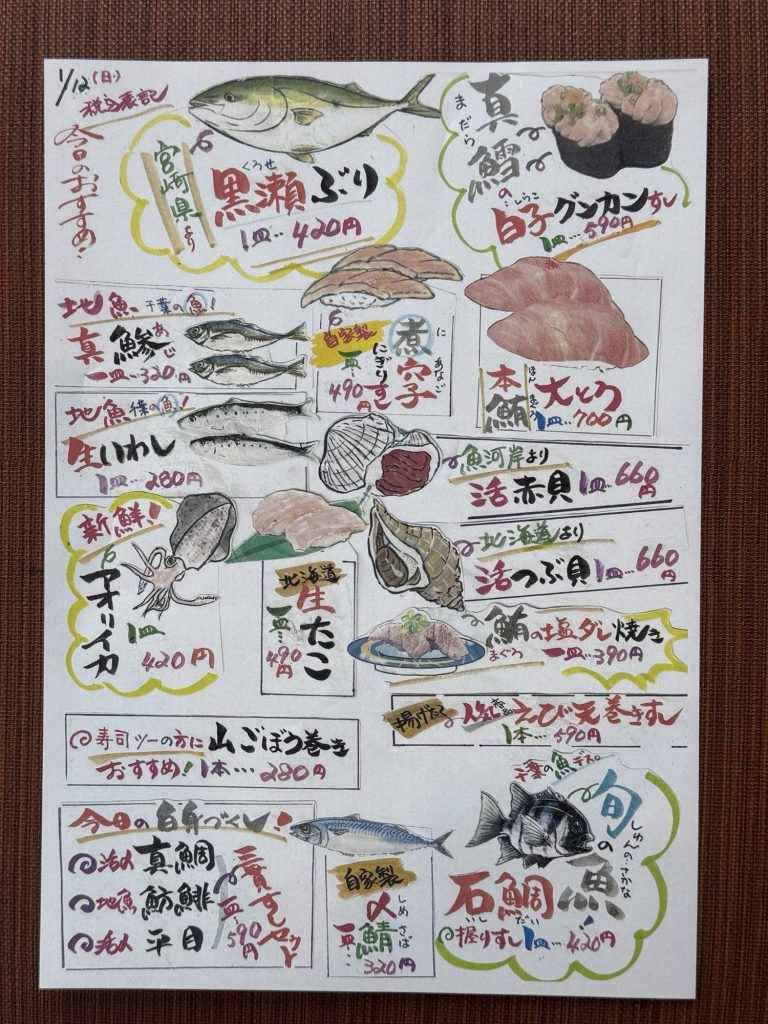 1/12(日)
税込表記
今日のおすすめ!
宮崎県より
くろせ
黒瀬ぶり
1皿…420円
まだら
真鱈の
しらこ
白子グンカンすし
1皿…590円
地魚 千葉の魚!
あじ
真鯵
一皿…320円
自家製
に あなご
煮穴子
にぎりすし
一皿…490円
ほん まぐろ
本鮪
大とろ
1皿…700円
地魚 千葉の魚!
生いわし
1皿…280円
魚河岸より
活赤貝 1皿…660円
新鮮!
アオリイカ
1皿 420円
北海道
生たこ
一皿…490円
北海道より
活つぶ貝 1皿…660円
鮪の塩ダレ焼き
まぐろ
一皿…390円
揚げたて 人気商品 えび天巻きすし
1本…590円
寿司ツーの方に 山ごぼう巻き
おすすめ! 1本…280円
今日の白身づくし!
活〆 真鯛
地魚 魴鮄
活〆 平目
三貫すしセット
一皿590円
自家製
しめさば
〆鯖
一皿…320円
千葉の魚デス。
しゅんのさかな
旬の魚!
いしだい
石鯛
握りすし 1皿…420円